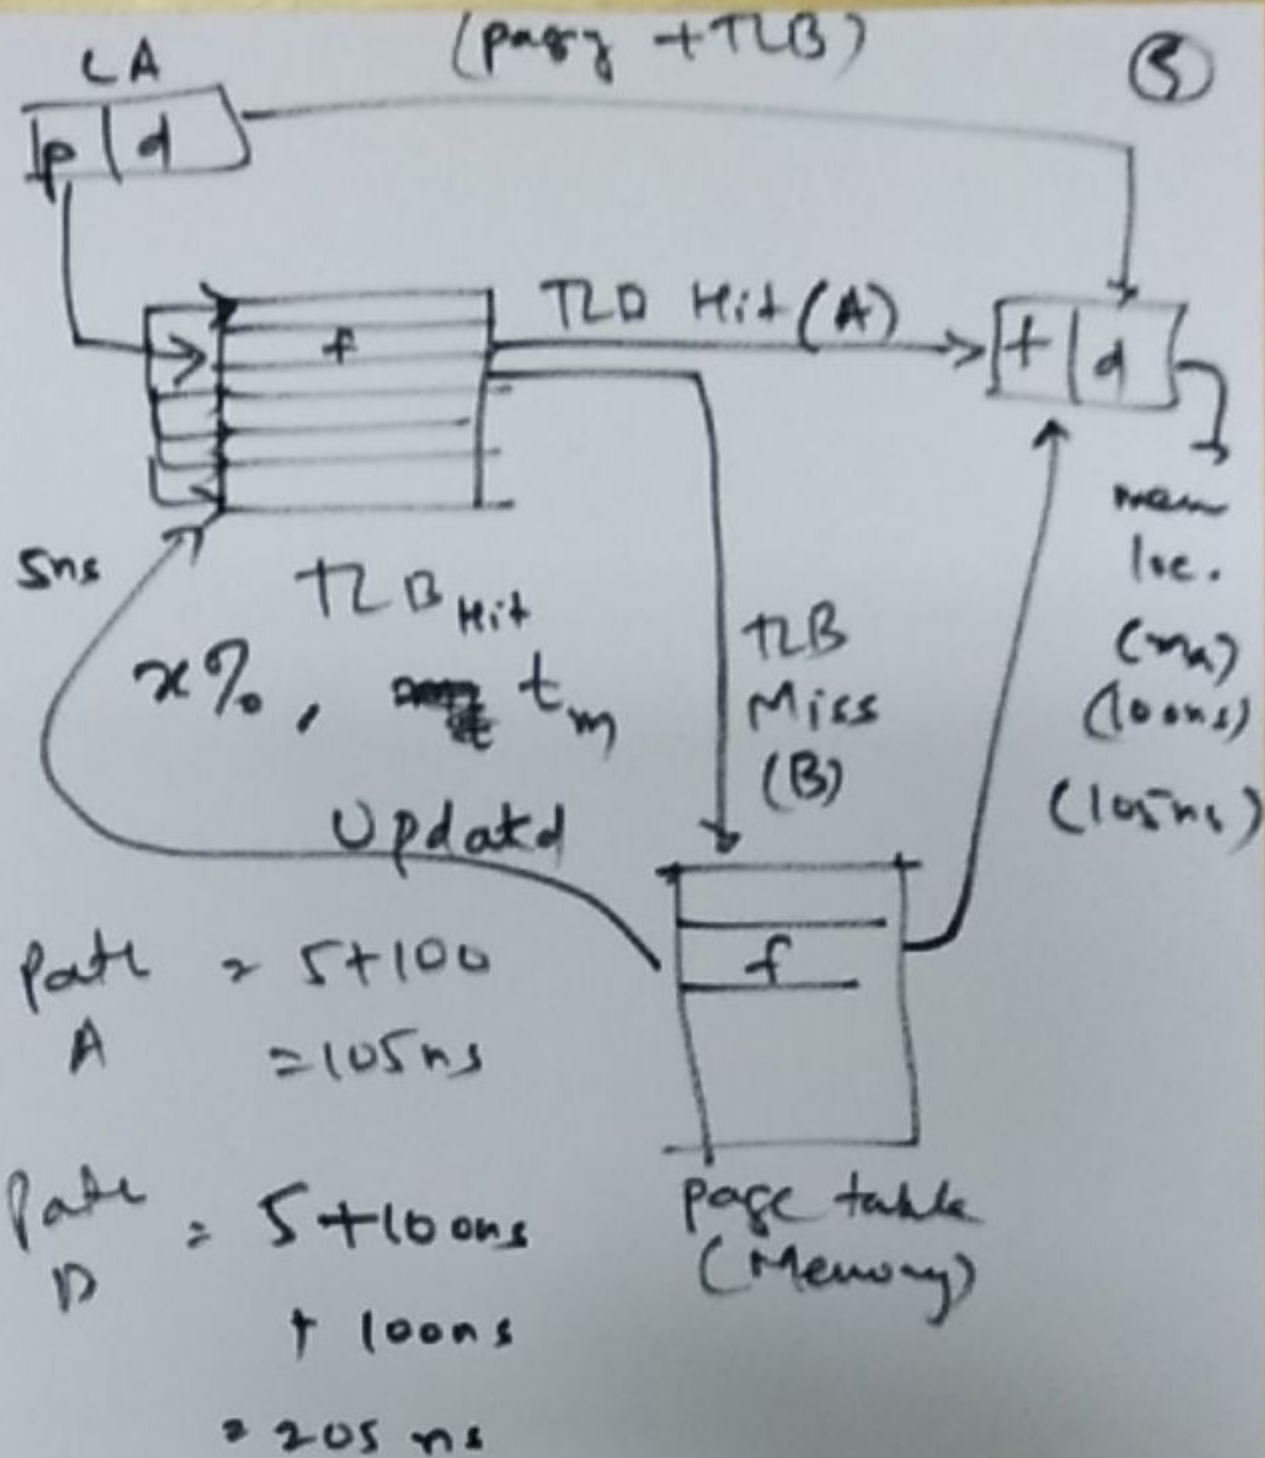 (pagy + TLB)
3
LA
p | d
f
TLB Hit (A)
f | d
mem
loc.
(ma)
(100ns)
(105ns)
5ns
TLB Hit
x%, tm
TLB
Miss
(B)
Updated
f
Page table
(Memory)
Path = 5+100
A = 105ns
Path = 5+100ns
B + 100ns
= 205 ns